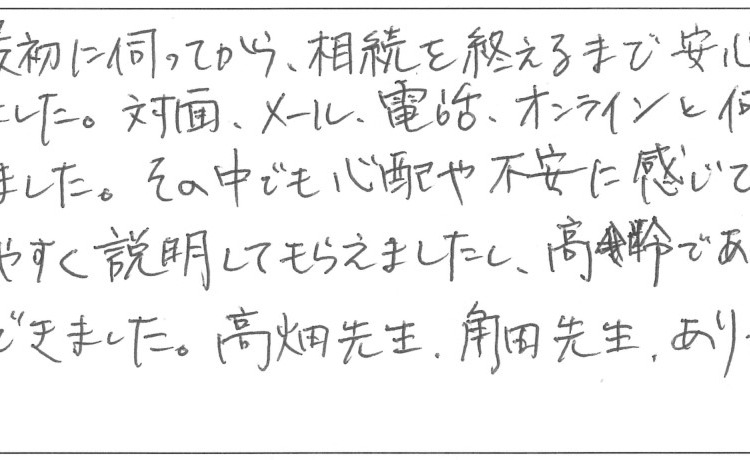 最初に伺ってから、相続を終えるまで安心
ました。対面、メール、電話、オンラインと何
ました。その中でも心配や不安に感じて
やすく説明してもらえましたし、高齢であ
できました。高畑先生、角田先生、あり